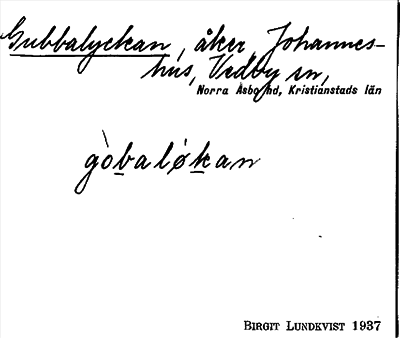 Gubbalyckan, åker, Johannes-
hus, Vedby sn,
Norra Åsbo hd, Kristianstads län
gòbalǿkan
BIRGIT LUNDKVIST 1937